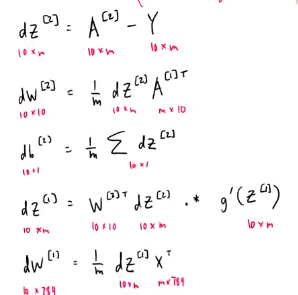 dZ^[2] = A^[2] - Y
10 x m 10 x m 10 x m
dW^[2] = 1/m dZ^[2] A^[1]T
10 x 10 10 x m m x 10
db^[2] = 1/m Σ dZ^[2]
10 x 1 10 x 1
dZ^[1] = W^[2]T dZ^[2] .* g'(Z^[1])
10 x m 10 x 10 10 x m 10 x m
dW^[1] = 1/m dZ^[1] X^T
10 x 784 10 x m m x 784